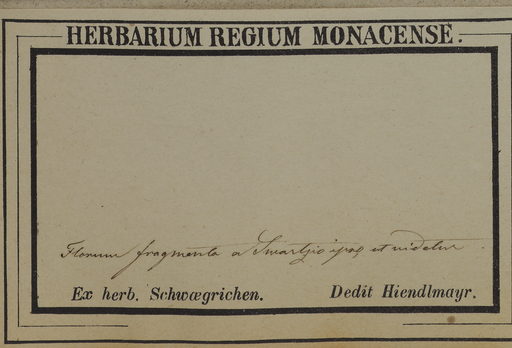 HERBARIUM REGIUM MONACENSE.
Florum fragmenta a Swartzio ipso ut videtur.
Ex herb. Schwægrichen. Dedit Hiendlmayr.